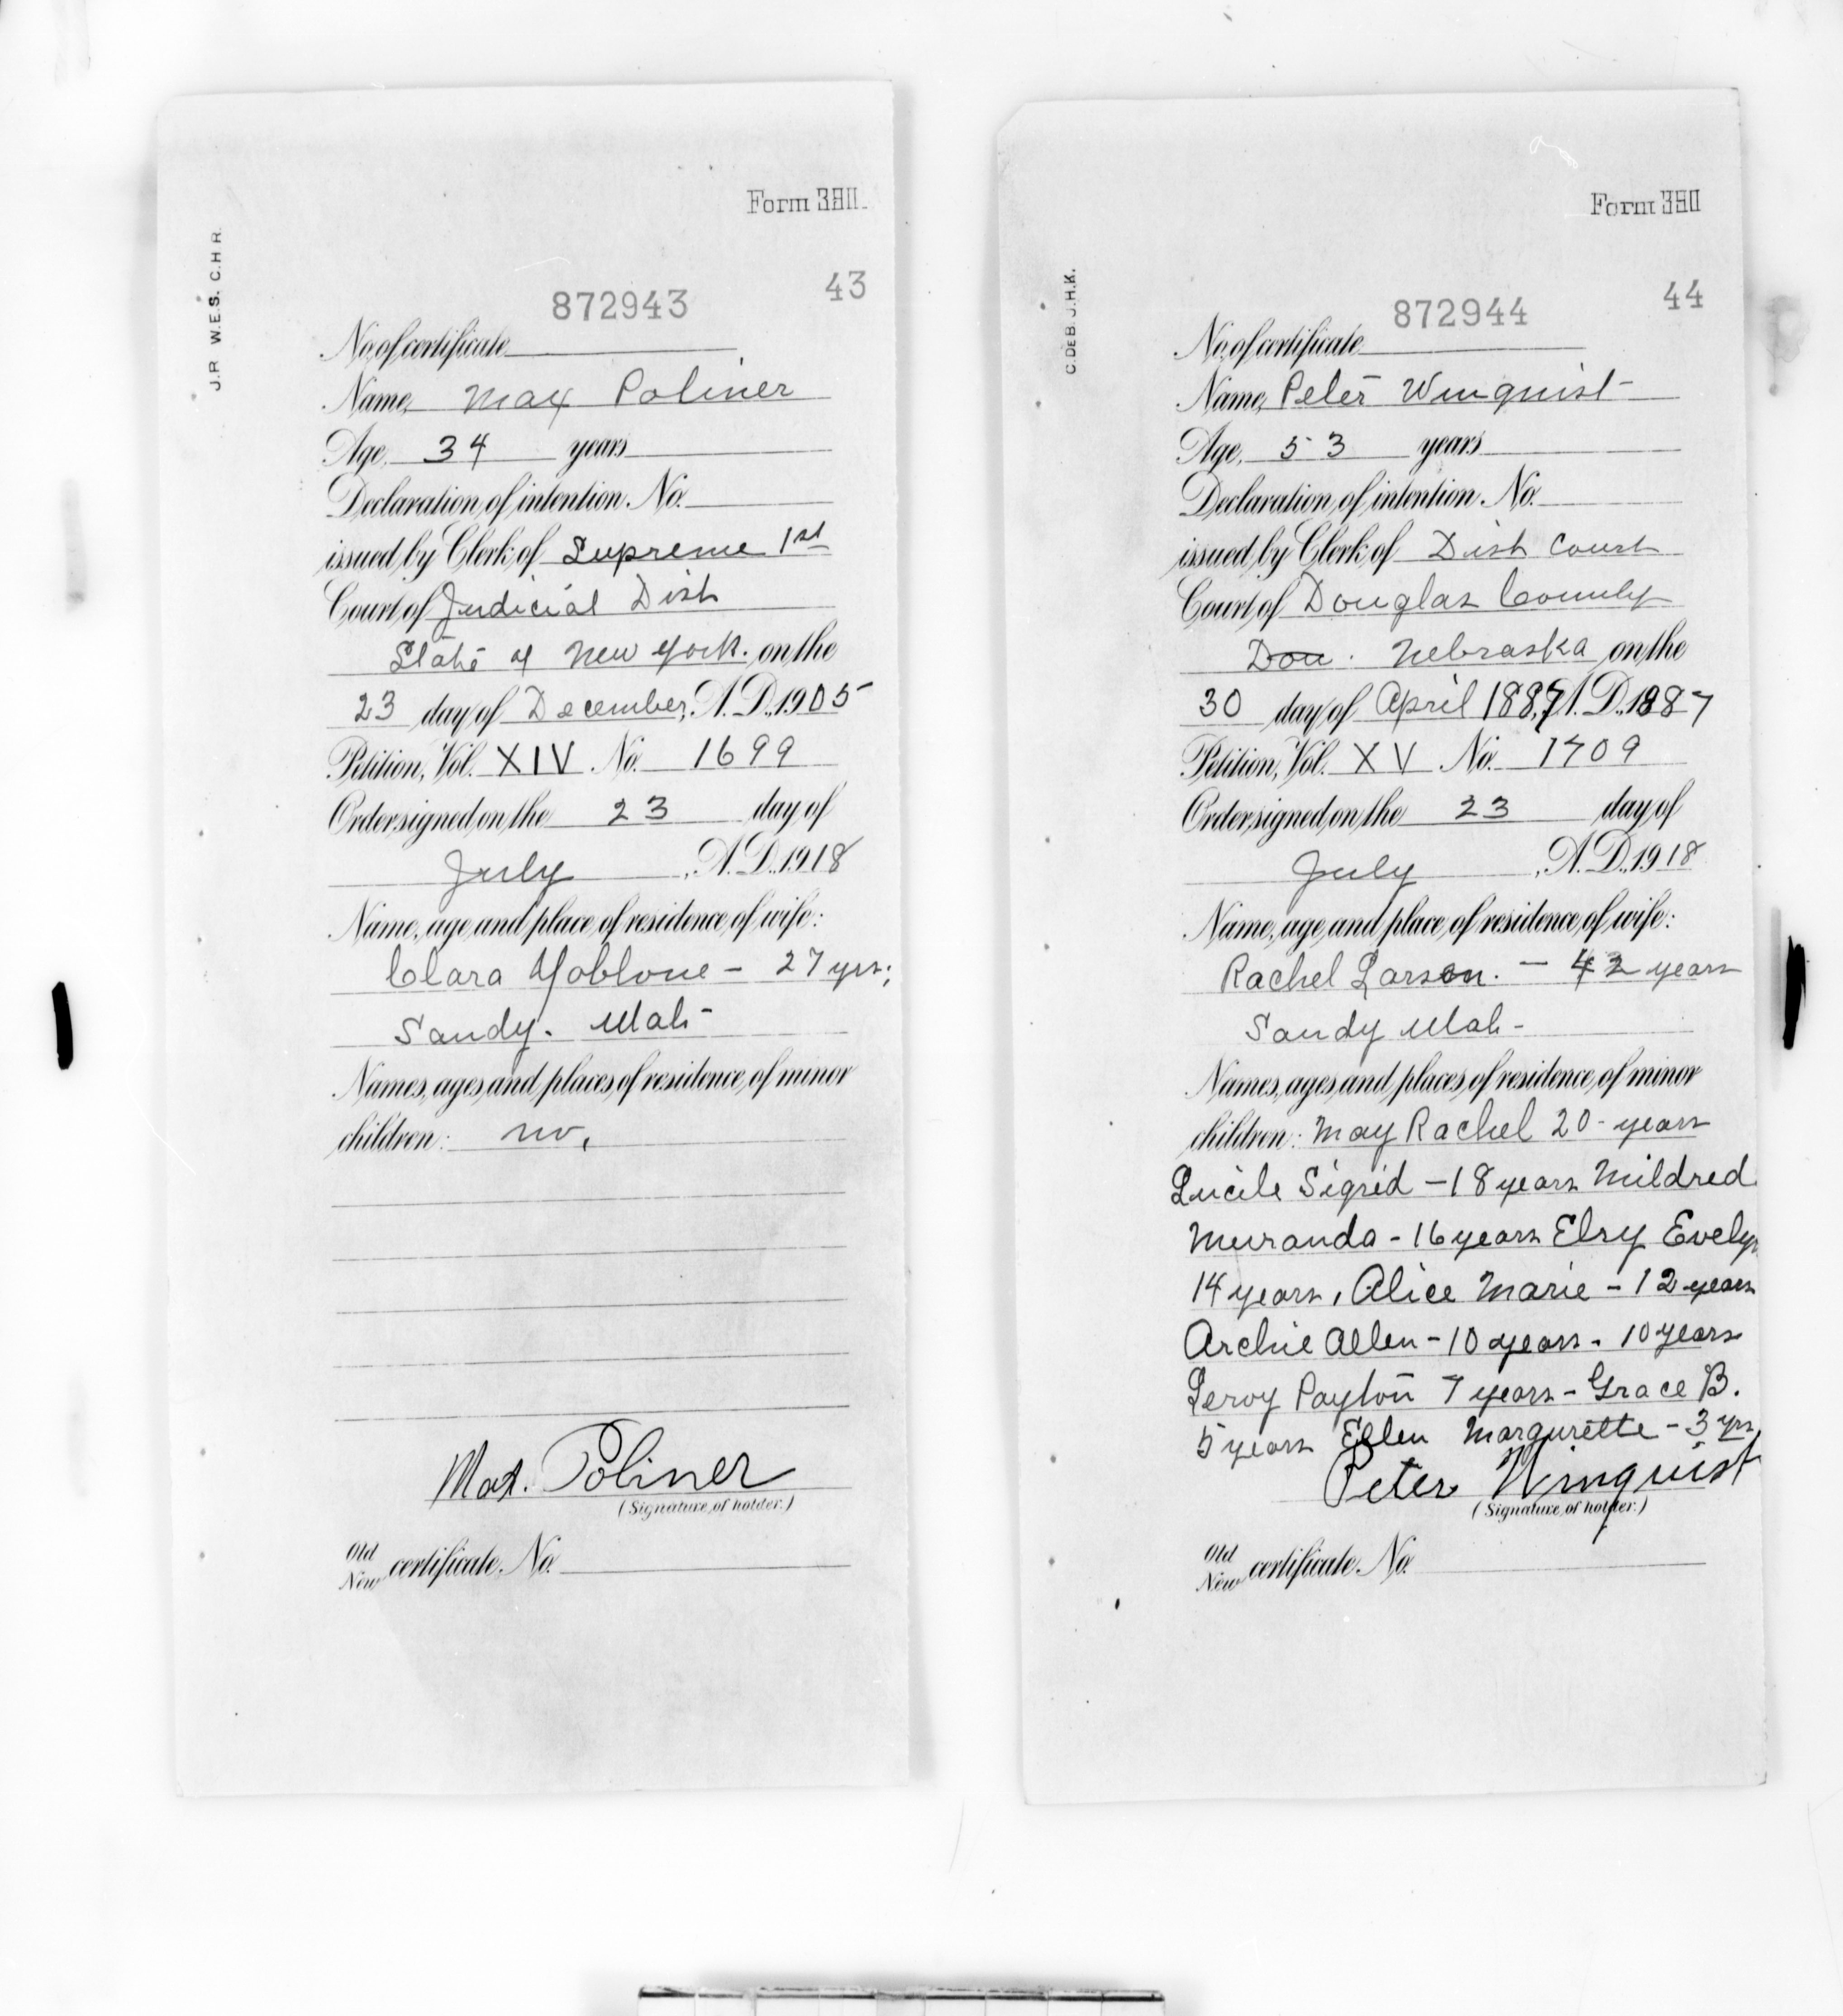 J.P. W.E.S. C.H.R.
Form
43
872943
No. of certificate
Name, Max Poliner
Age, 34 years
Declaration of intention No.
issued by Clerk of Supreme 1st
Court of Judicial Dist
State of New York. on the
23 day of December, A.D. 1905
Petition, Vol. XIV No. 1699
Order signed on the 23 day of
July, A.D. 1918
Name, age, and place of residence of wife:
Clara Yoblone - 27 yrs;
Sandy. Utah
Names, ages, and places of residence of minor
children: no.
Max. Poliner
(Signature of holder.)
Old
New certificate No.
C.DE B. J.H.K.
Form
44
872944
No. of certificate
Name, Peter Winquist
Age, 53 years
Declaration of intention No.
issued by Clerk of Dist Court
Court of Douglas County
Dou. Nebraska on the
30 day of April 1887 A.D. 1887
Petition, Vol. XV No. 1709
Order signed on the 23 day of
July, A.D. 1918
Name, age, and place of residence of wife:
Rachel Larson. - 42 years
Sandy Utah -
Names, ages, and places of residence of minor
children: May Rachel 20 - years
Lucile Sigrid - 18 years Mildred
Muranda - 16 years Elsy Evelyn
14 years, Alice Marie - 12 years
Archie Allen - 10 years - 10 years
Leroy Payton 7 years - Grace B.
5 years Ellen Margurette - 3 yrs
Peter Winquist
(Signature of holder.)
Old
New certificate No.